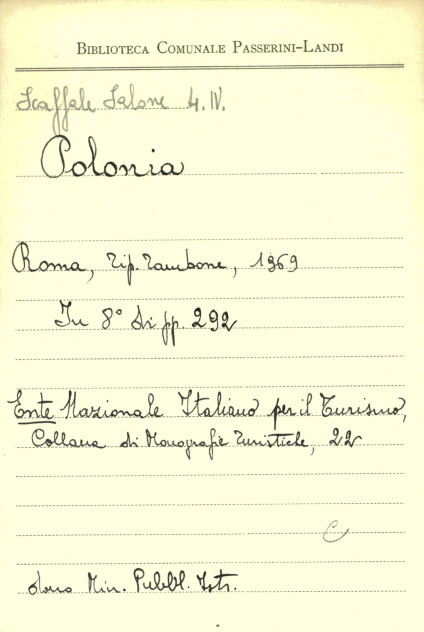 BIBLIOTECA COMUNALE PASSERINI-LANDI
Scaffale Salone 4. IV.
Polonia
Roma, Tip. Tambone, 1969
In 8° di pp. 292
Ente Nazionale Italiano per il Turismo,
Collana di Monografie Turistiche, 22
C
dono Min. Pubbl. Istr.